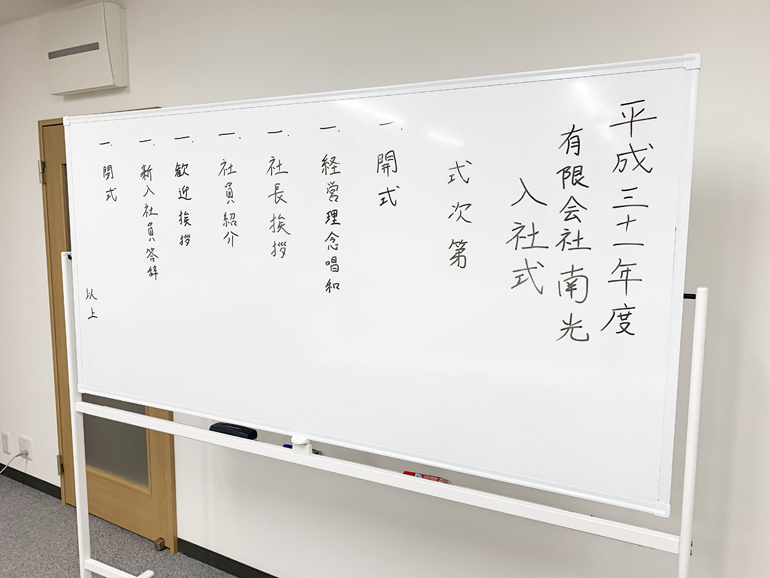 平成三十一年度
有限会社南光
入社式
式次第
一、開式
一、経営理念唱和
一、社長挨拶
一、社員紹介
一、歓迎挨拶
一、新入社員答辞
一、閉式
以上